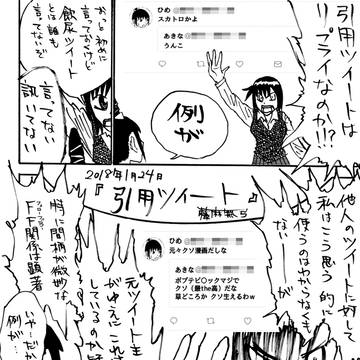 引用ツイートは
リプライなのか!!?
ひめ@
スカトロかよ
あきな@
うんこ
例が
おっと初めに
言っておくけど
飲尿ツイート
とは誰も
言ってないぞ
言ってない
訊いてない
2018年1月24日
『引用ツイート』
他人のツイートに対して
私はこう思う的に
使うのはわからなくも
ひめ@
元々クソ漫画だしな
あきな@
ポプテピ〇ックマジで
クソ(最the高)だな
草どころか クソ生えるわw
元ツイート主
がゆえにこれ
しているのか
特に間柄が微妙な
FF関係は顕著
いや…だか
例が…